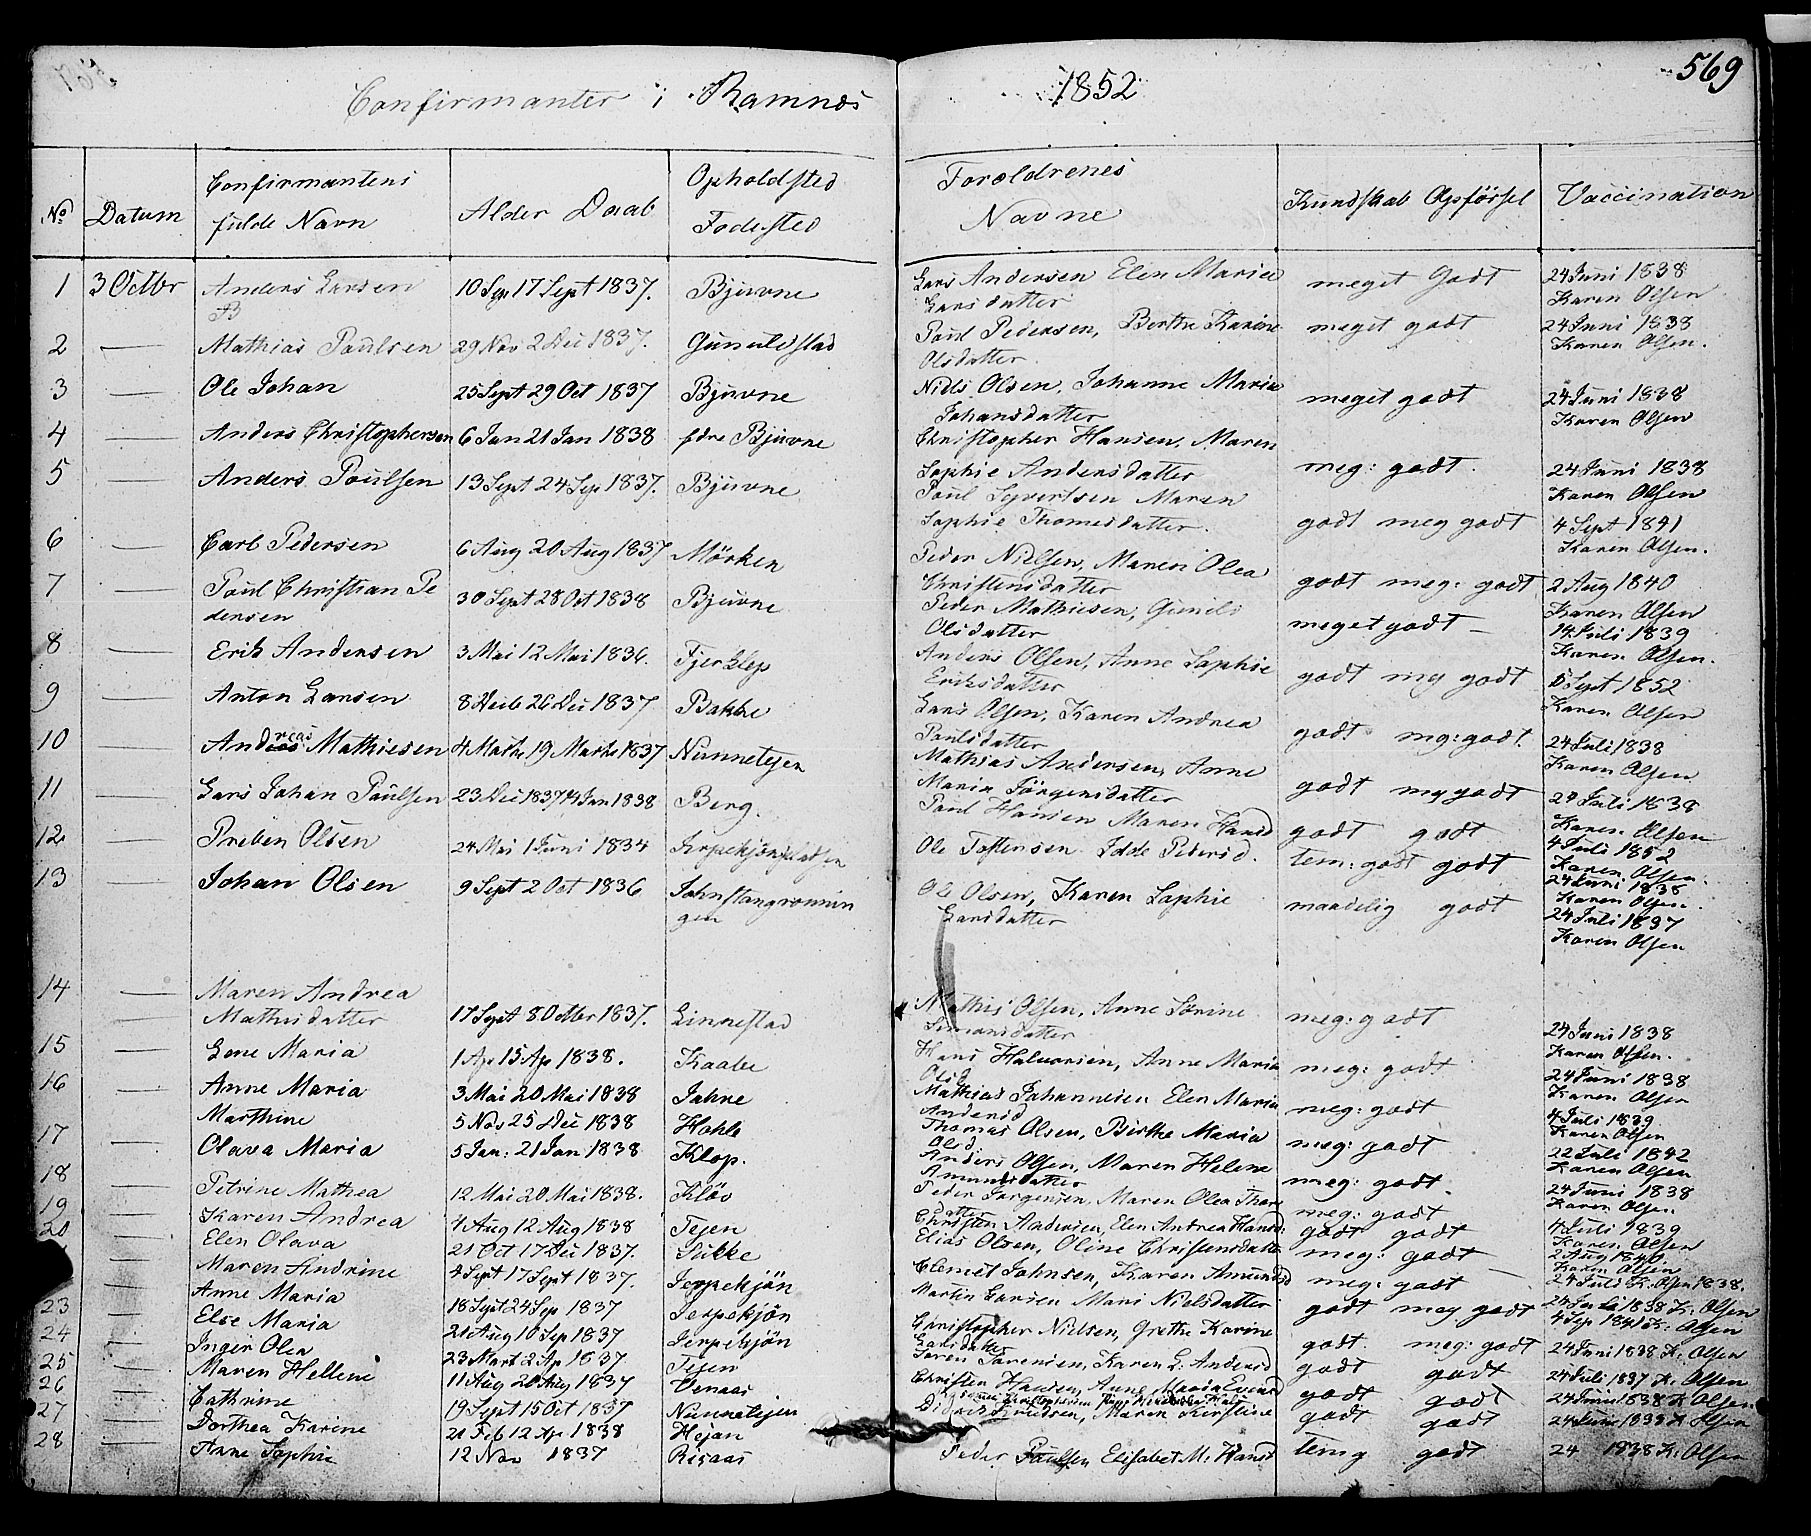 Confirmanter i Ramnæs 1852 569
No Datum Confirmantens fulde Navn Alder Daab Opholdsted Fødested Forældrenes Navne Kundskab Opførsel Vaccination
1 3 Octbr Anders Larsen 10 Sep 17 Sept 1837. Bjuvne Lars Andersen Elen Maria Larsdatter meget Godt 24 Juni 1838 Karen Olsen
2 — Mathias Paulsen 29 Nov 2 Dec 1837. Gunuldstad Poul Pedersen, Berthe Karine Olsdatter meget godt 24 Juni 1838 Karen Olsen.
3 — Ole Johan 25 Sept 29 Oct 1837 Bjuvne Niels Olsen, Johanne Maria Johansdatter meget godt 24 Juni 1838 Karen Olsen
4 — Anders Christophersen 6 Jan 21 Jan 1838 Bjuvne Christopher Hansen, Maren Sophie Andersdatter meg: godt. 24 Juni 1838 Karen Olsen
5 — Anders Poulsen 13 Sept 24 Sep 1837. Bjuvne Poul Syvertsen Maren Sophie Thomesdatter. godt meg godt 4 Sept 1841 Karen Olsen.
6 — Carl Pedersen 6 Aug 20 Aug 1837 Mörken Peder Nielsen, Maren Olea Christensdatter godt meg: godt 2 Aug 1840 Karen Olsen
7 — Poul Christian Pedersen 30 Sept 28 Oct 1838 Bjuvne Peder Mathiesen, Gunild Olsdatter meget godt — 14 Juli 1839 Karen Olsen.
8 — Erik Andersen 3 Mai 12 Mai 1836. Fjerklep Anders Olsen, Anne Sophie Eriksdatter godt mg godt Sept 1852 Karen Olsen
9 — Anton Larsen 8 Decb 26 Dec 1837 Bakke Lars Olsen, Karen Andrea Paulsdatter godt mg: godt. 24 Juli 1838 Karen Olsen
10 — Andreas Mathiesen 4 Marts 19 Marts 1837 Nunnetejen Mathias Andersen, Anne Maria Jörgensdatter godt mg godt 24 Juli 1838 Karen Olsen
11 — Lars Johan Paulsen 23 Dec 1837 14 Jan 1838 Berg. Paul Hansen Maren Hansd godt godt 4 Juli 1852 Karen Olsen.
12 — Preben Olsen 24 Mai 1 Juni 1834 Ole Tostensen Idde Pedersd. tem: godt godt 24 Juni 1838 Karen Olsen.
13 — Johan Olsen 9 Sept 2 Oct 1836 Ole Olsen, Karen Sophie Larsdatter maadelig godt 24 Juli 1837 Karen Olsen
14 — Maren Andrea Mathisdatter 17 Sept 8 Octbr 1837. Linnestad Mathis Olsen, Anne Sörine Simonsdatter meg: godt 24 Juni 1838 Karen Olsen.
15 — Lene Maria 1 Ap 15 Ap 1838. Kaabe Hans Halvorsen, Anne Maria Olsd meg: godt 24 Juni 1838 Karen Olsen
16 — Anne Maria 3 Mai 20 Mai 1838 Jahre Mathias Johannesen Elen Maria Andersd meg: godt 4 Juli 1839 Karen Olsen
Marthine 5 Nov 25 Dec 1838 Hohle Thomas Olsen, Birthe Maria Olsd meg: godt 22 Juli 1842 Karen Olsen
17 — Olava Maria 5 Jan: 21 Jan 1838 Klop. Anders Olsen, Maren Helene Amundsdatter meg: godt. 24 Juni 1838 Karen Olsen
18 — Petrine Mathea 12 Mai 20 Mai 1838. Klöv Peder Jörgensen, Maren Olea Thoredatter meg: godt 4 Juli 1839 Karen Olsen
19 — Karen Andrea 4 Aug 12 Aug 1838 Tejen Christen Andersen, Elen Andrea Hansd: godt godt 2 Aug 1840 Karen Olsen
20 — Elen Olava 21 Oct 17 Dec 1837. Elias Olsen, Oline Christensdatter meg: godt — 24 Juli K: Olsen 1838.
Maren Andrine 4 Sept 17 Sept 1837. Jerpekjön Clemet Johnsen, Karen Amundsd meg: godt 24 1838 K: Olsen
Anne Maria 18 Sept 24 Sep 1837 Jerpekjön Martin Larsen Mari Nielsdatter godt meg godt 4 Sep 1841 K: Olsen
23 — Else Maria 21 Aug 10 Sep 1837 Jerpekjön Christopher Nielsen, Grethe Karine Larsdatter godt. meg: godt 24 Juni 1838 K: Olsen
24 — Inger Olea 23 Mart 2 Ap 1837 Tejen Sören Sörensen, Karen L: Andersd godt godt 24 Juli 1837 K. Olsen
25 — Maren Hellene 11 Aug 20 Aug 1837 Venaas Christen Hansen, Anne Maria godt godt 24 Juni 1838 K Olsen
26 — Cathrine 19 Sept 15 Oct 1837 Nunnetejen Knudsen, Maren Kirstine godt godt 24 Juni 1838 K Olsen
27 — Dorthea Karine 21 Feb 12 Ap 1838 Hejan
28 — Anne Sophie 12 Nov 1837 Risaas Peder Paulsen Elisabet M: Hansd temg godt 24 1838 K: Olsen